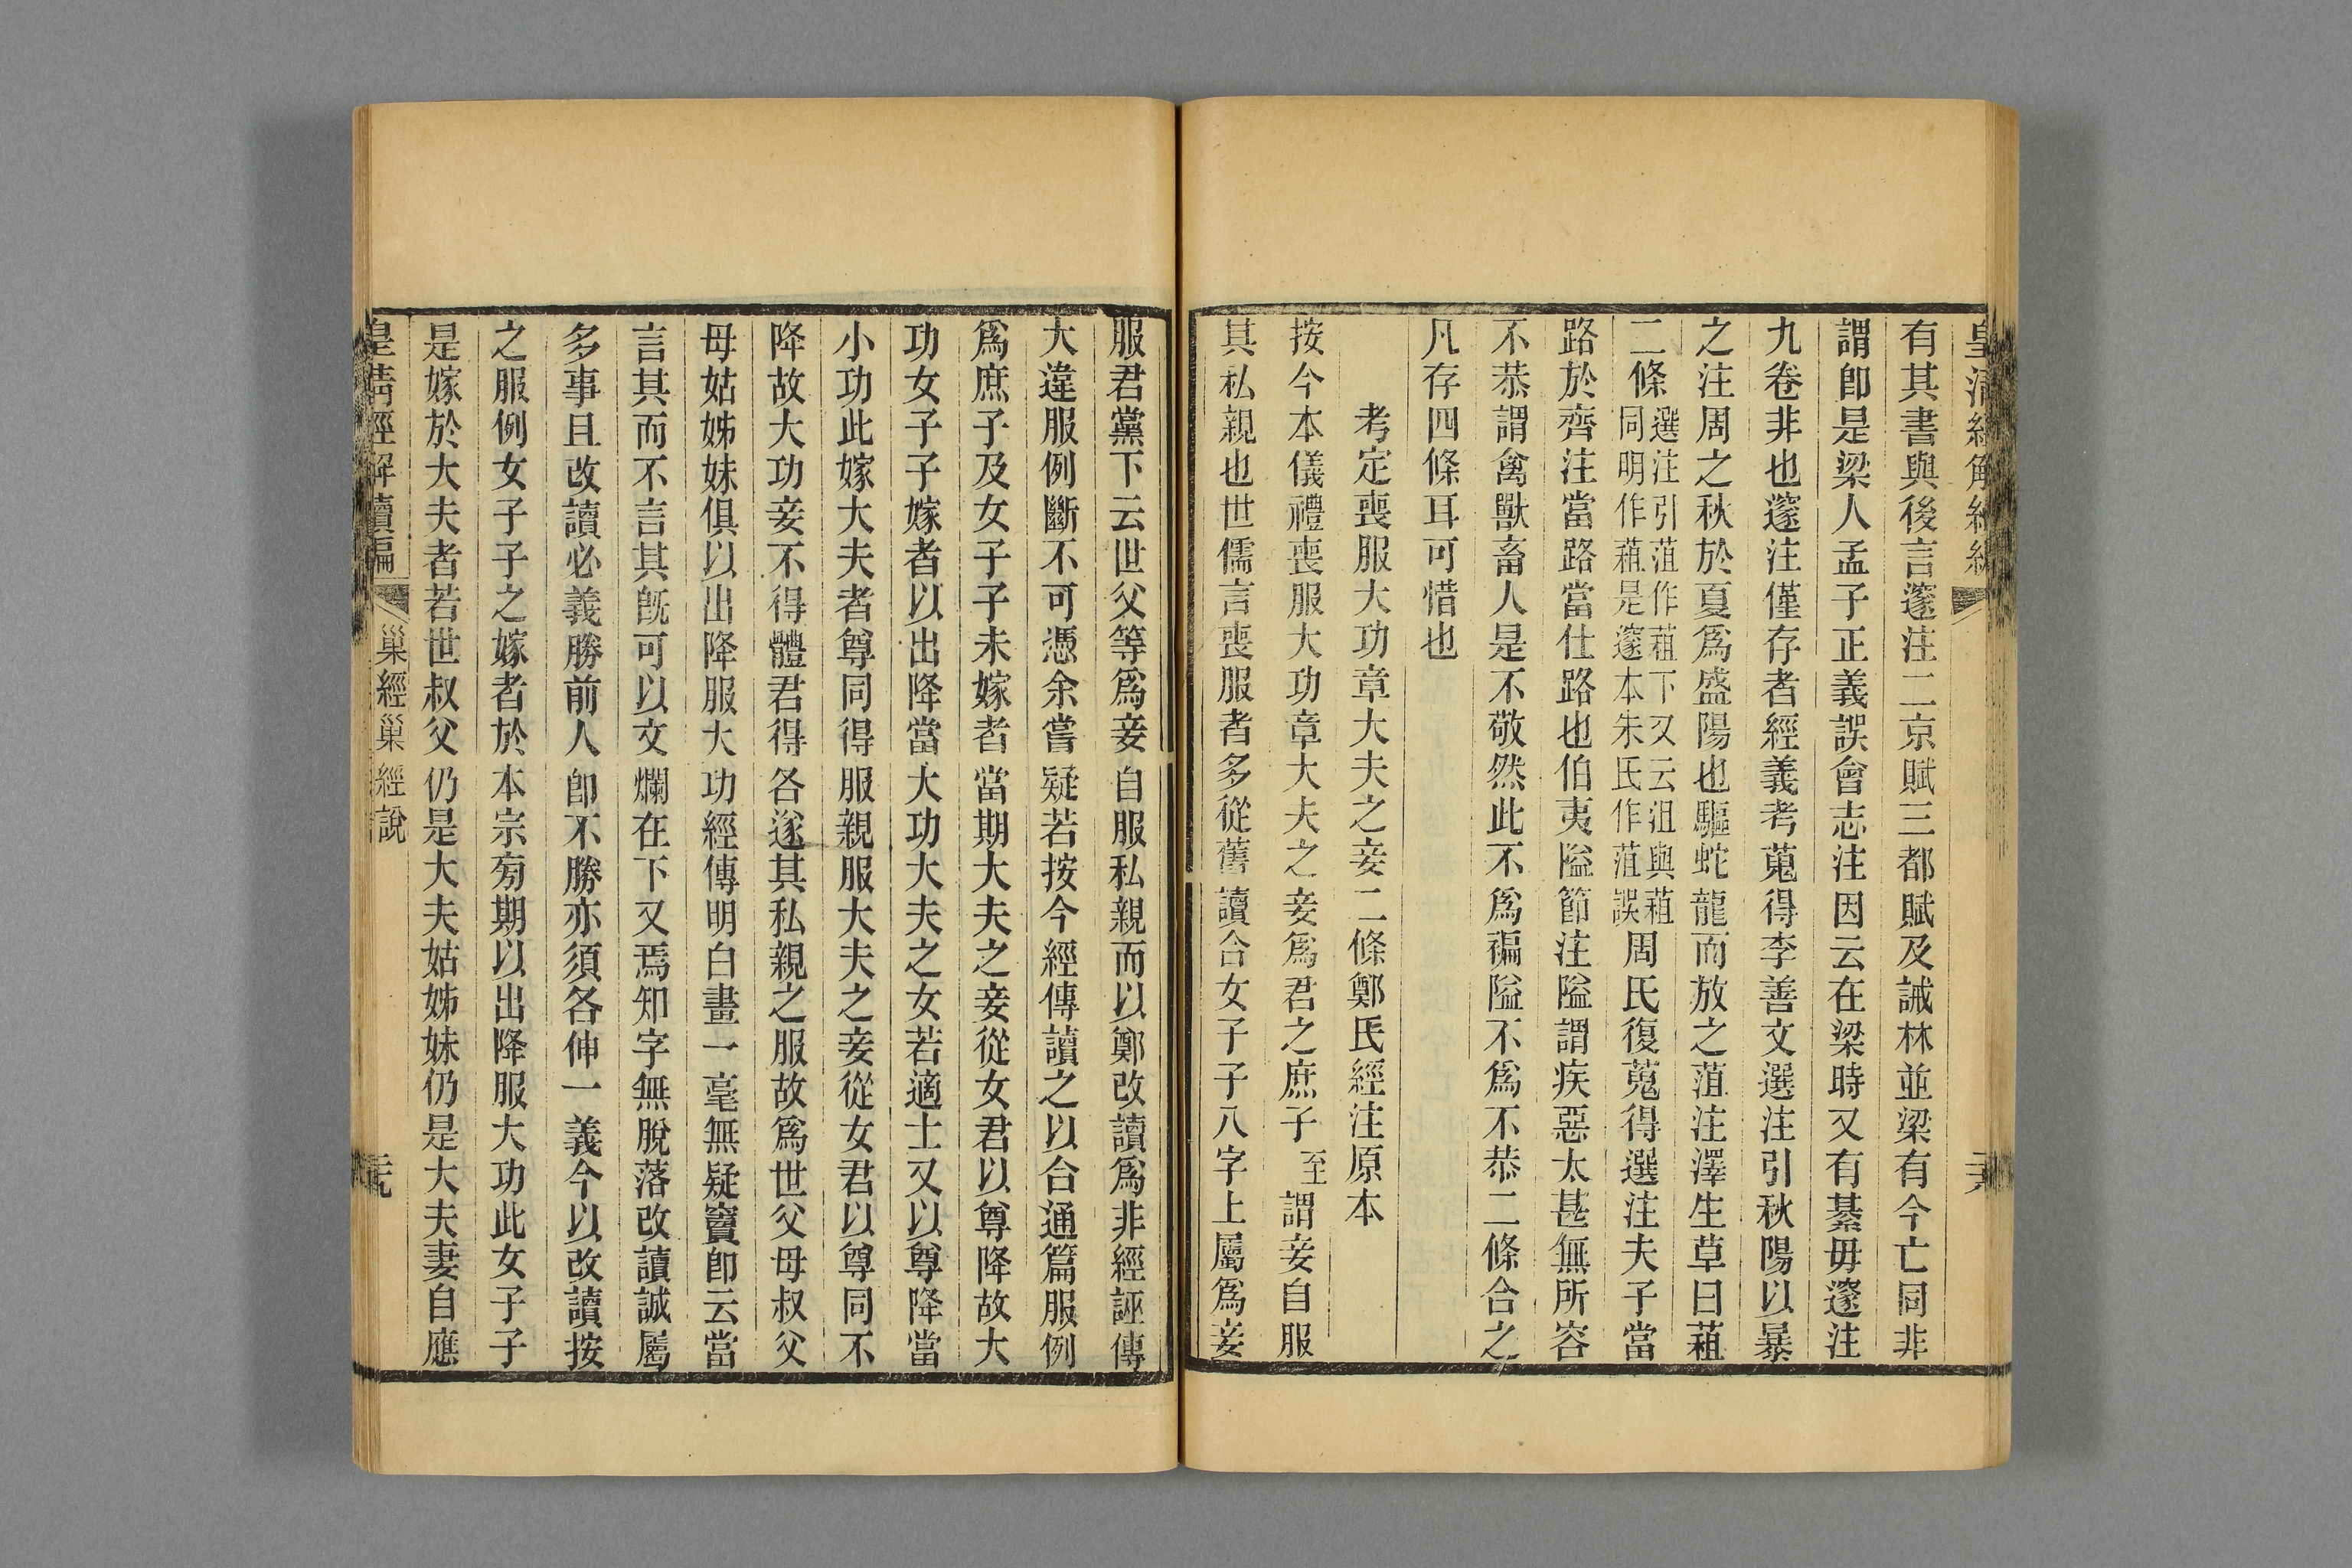 有其書與後言邃注二京賦三都賦及誡林並梁有今亡同非
謂卽是梁人孟子正義誤會志注因云在梁時又有綦毋邃注
九卷非也邃注僅存者經義考蒐得李善文選注引秋陽以暴
之注周之秋於夏爲盛陽也驅蛇龍而放之菹注澤生草曰蒩
二條選注引菹作蒩下又云沮與蒩同明作蒩是邃本朱氏作菹誤周氏復蒐得選注夫子當
路於齊注當路當仕路也伯夷隘節注隘謂疾惡太甚無所容
不恭謂禽獸畜人是不敬然此不爲褊隘不爲不恭二條合之
凡存四條耳可惜也
考定喪服大功章大夫之妾二條鄭氏經注原本
按今本儀禮喪服大功章大夫之妾爲君之庶子至謂妾自服
其私親也世儒言喪服者多從舊讀合女子子八字上屬爲妾
服君黨下云世父等爲妾自服私親而以鄭改讀爲非經誣傳
大違服例斷不可憑余嘗疑若按今經傳讀之以合通篇服例
爲庶子及女子子未嫁者當期大夫之妾從女君以尊降故大
功女子子嫁者以出降當大功大夫之女若適士又以尊降當
小功此嫁大夫者尊同得服親服大夫之妾從女君以尊同不
降故大功妾不得體君得各遂其私親之服故爲世父母叔父
母姑姊妹俱以出降服大功經傳明白畫一毫無疑竇卽云當
言其而不言其旣可以文爛在下又焉知字無脫落改讀誠屬
多事且改讀必義勝前人卽不勝亦須各伸一義今以改讀按
之服例女子子之嫁者於本宗旁期以出降服大功此女子子
是嫁於大夫者若世叔父仍是大夫姑姊妹仍是大夫妻自應
皇清經解續編
巢經巢經說